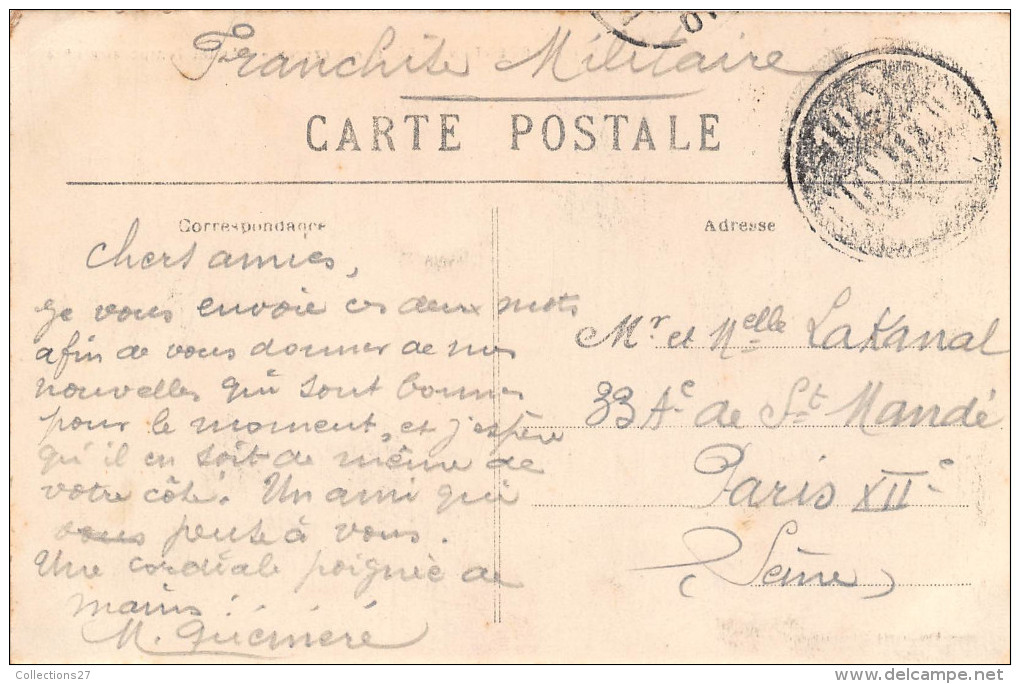 Franchise Militaire
CARTE POSTALE
Correspondance
Adresse
chers amies,
Je vous envoie ces deux mots
afin de vous donner de mes
nouvelles qui sont bonnes
pour le moment, et j'espère
qu'il en soit de même de
votre côté. Un ami qui
vous pense à vous.
Une cordiale poignée de
mains!
Mr et Melle Lakanal
33 Ae de St Mandé
Paris XIIe
(Seine)
Collections27
www.delcampe.net